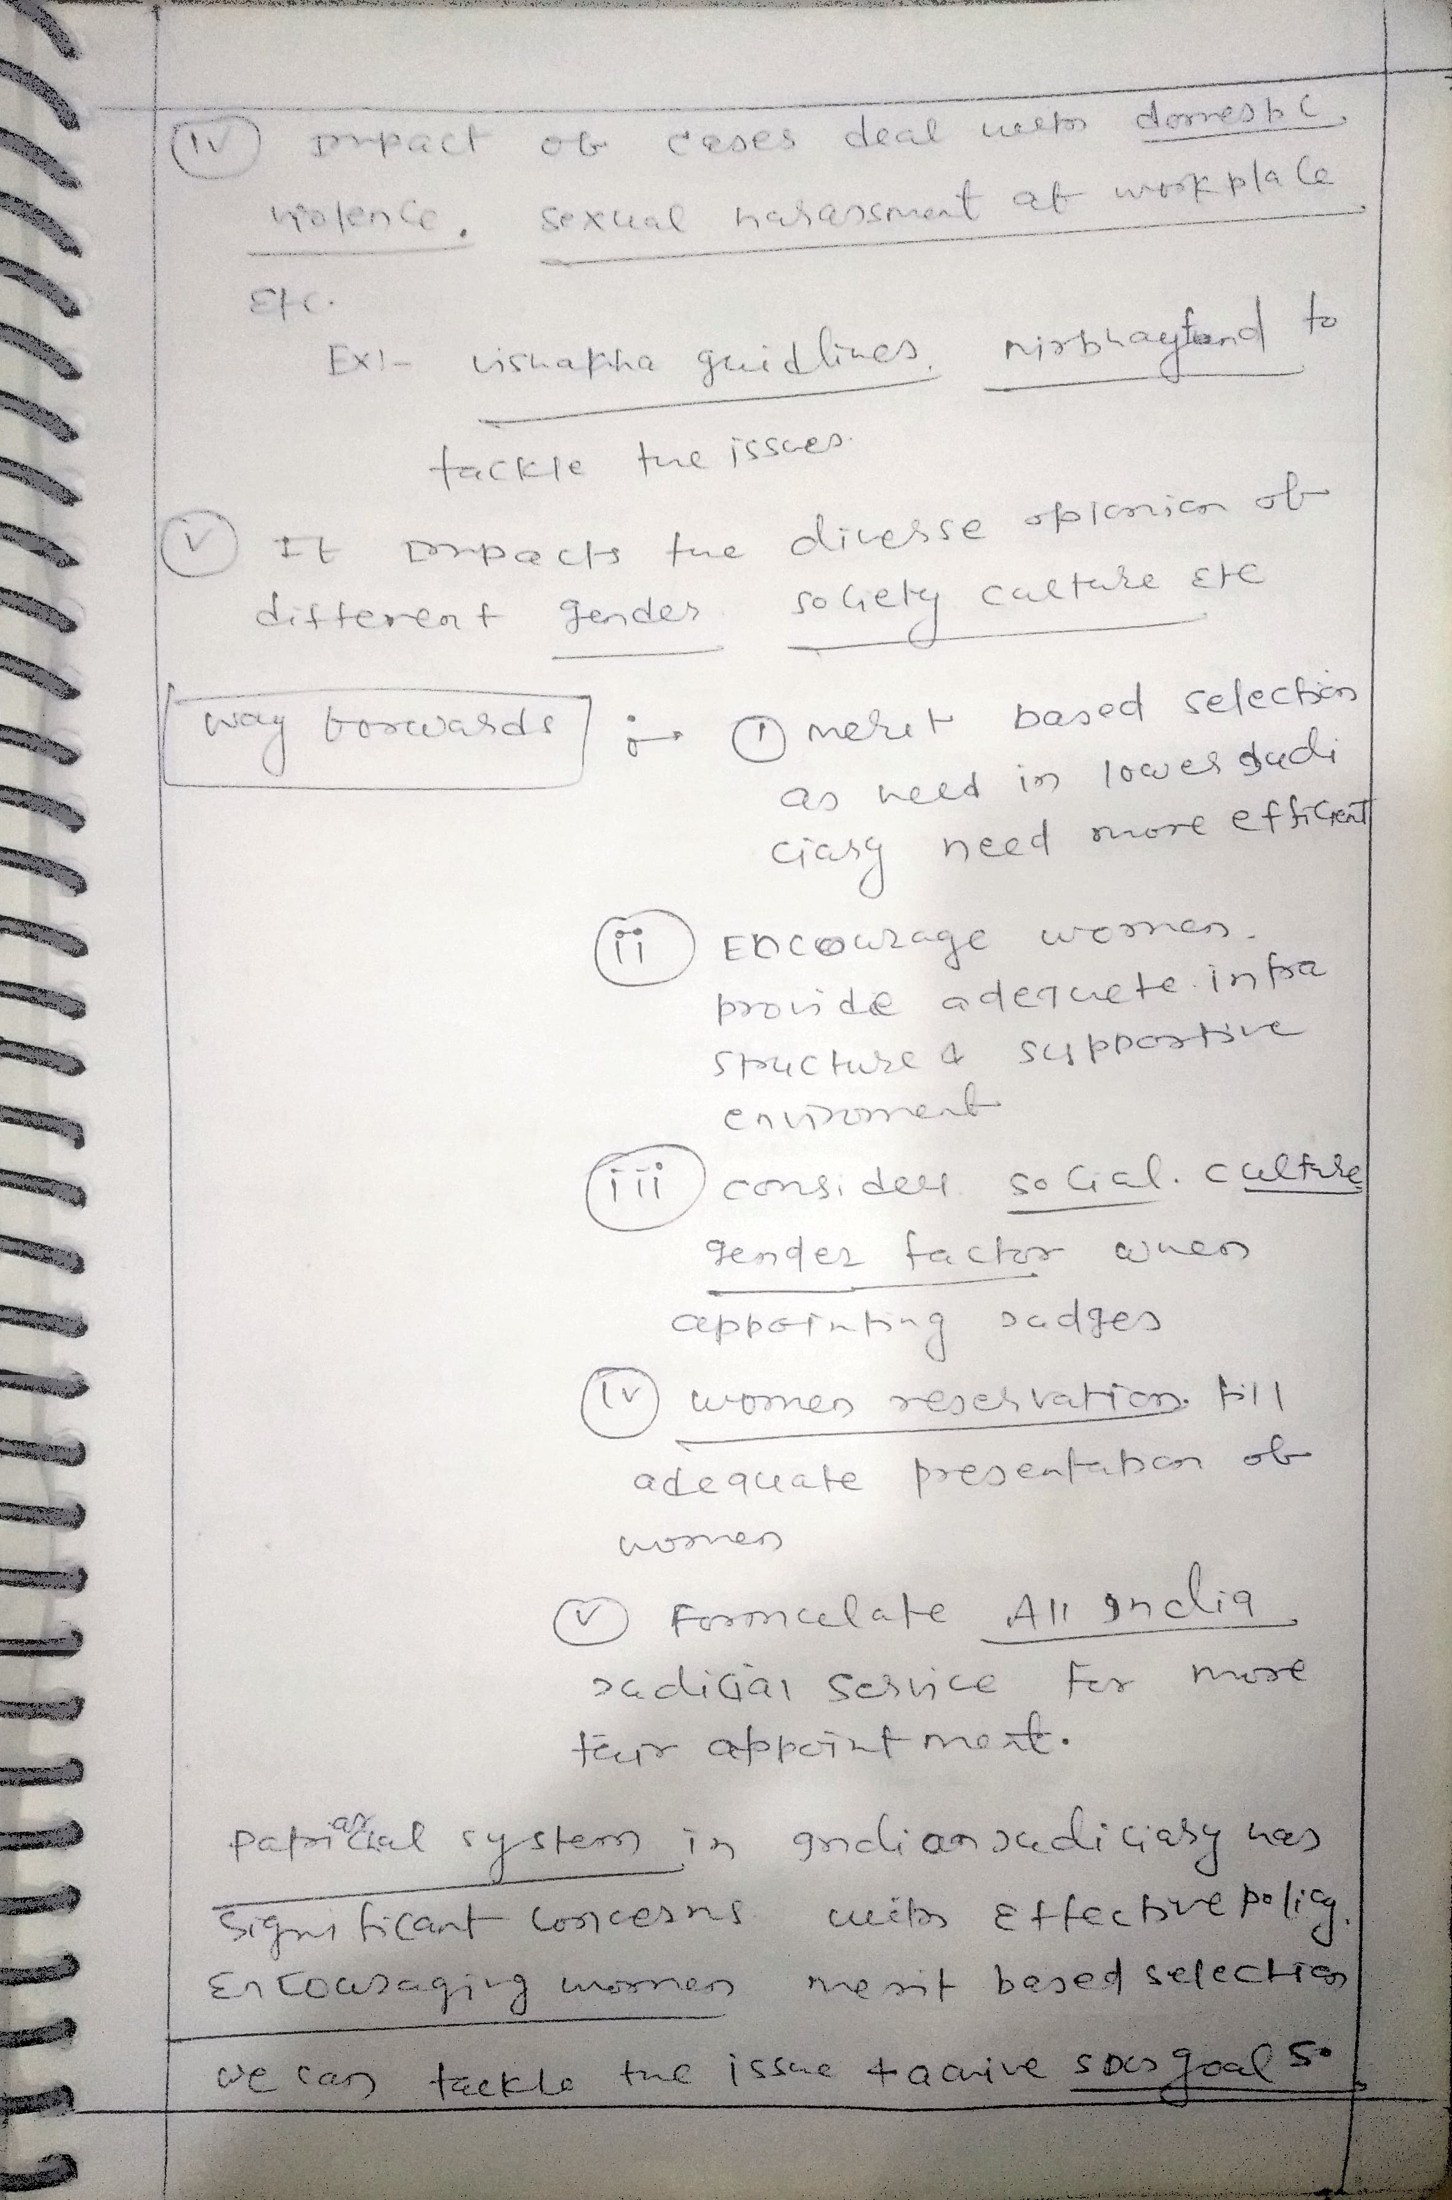 (iv) Impact of cases deal with domestic
violence, sexual harassment at workplace
Etc.
Ex:- vishakha guidlines, nirbhayfund to
tackle the issues.
(v) It impacts the diverse opionion of
different gender society culture etc
way forwards :- (i) merit based selection
as need in lower judi
ciary need more efficient
(ii) Encourage women.
provide adequete infra
structure & supportive
enviroment
(iii) consider social. culture
gender factor when
appointing judges
(iv) women reservation. till
adequate presentation of
women
(v) Formulate All India
judicial service for more
fair appointment.
patriarcial system in Indian judiciary has
significant concerns with Effective policy,
Encouraging women merit based selection
we can tackle the issue & achive SDG goal 5.